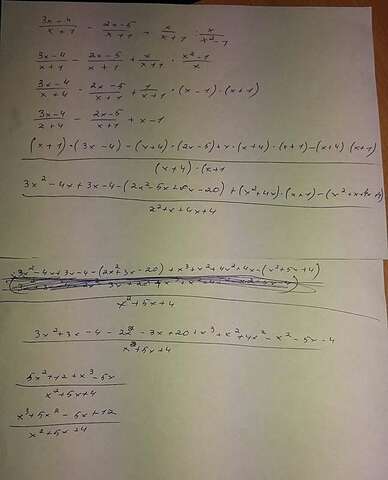 (3x-4)/(x+1) - (2x-5)/(x+1) + x/(x+1) : x/(x²-1)
(3x-4)/(x+1) - (2x-5)/(x+1) + x/(x+1) · (x²-1)/x
(3x-4)/(x+4) - (2x-5)/(x+1) + 1/(x+1) · (x-1) · (x+1)
(3x-4)/(x+4) - (2x-5)/(x+1) + x-1
((x+1)·(3x-4)-(x+4)·(2x-5)+x·(x+4)·(x+1)-(x+4)(x+1))/((x+4)·(x+1))
(3x²-4x+3x-4-(2x²-5x+8x-20)+(x²+4x)·(x+1)-(x²+x+4x+4))/(x²+x+4x+4)
(3x²-4x+3x-4-(2x²+3x-20)+x³+x²+4x²+4x-(x²+5x+4))/(x²+5x+4)
(3x²+3x-4-2x²-3x+20+x³+x²+4x²-x²-5x-4)/(x²+5x+4)
(5x²+12+x³-5x)/(x²+5x+4)
(x³+5x²-5x+12)/(x²+5x+4)